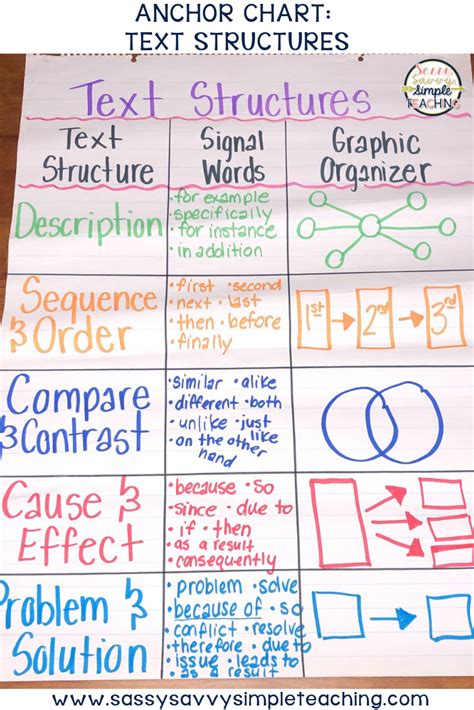 ANCHOR CHART:
TEXT STRUCTURES
Sassy
Savvy
Simple
TEACHING
Text Structures
Text
Structure
Signal
Words
Graphic
Organizer
Description
• for example
• specifically
• for instance
• in addition
Sequence
& Order
• first • second
• next • last
• then • before
• finally
1st
2nd
3rd
Compare
& Contrast
• similar • alike
• different • both
• unlike • just like
• on the other
hand
Cause &
Effect
• because • so
• since • due to
• if • then
• as a result
• consequently
Problem &
Solution
• problem • solve
• because of • so
• conflict • resolve
• therefore • due to
• issue • leads to
• as a result
www.sassysavvysimpleteaching.com